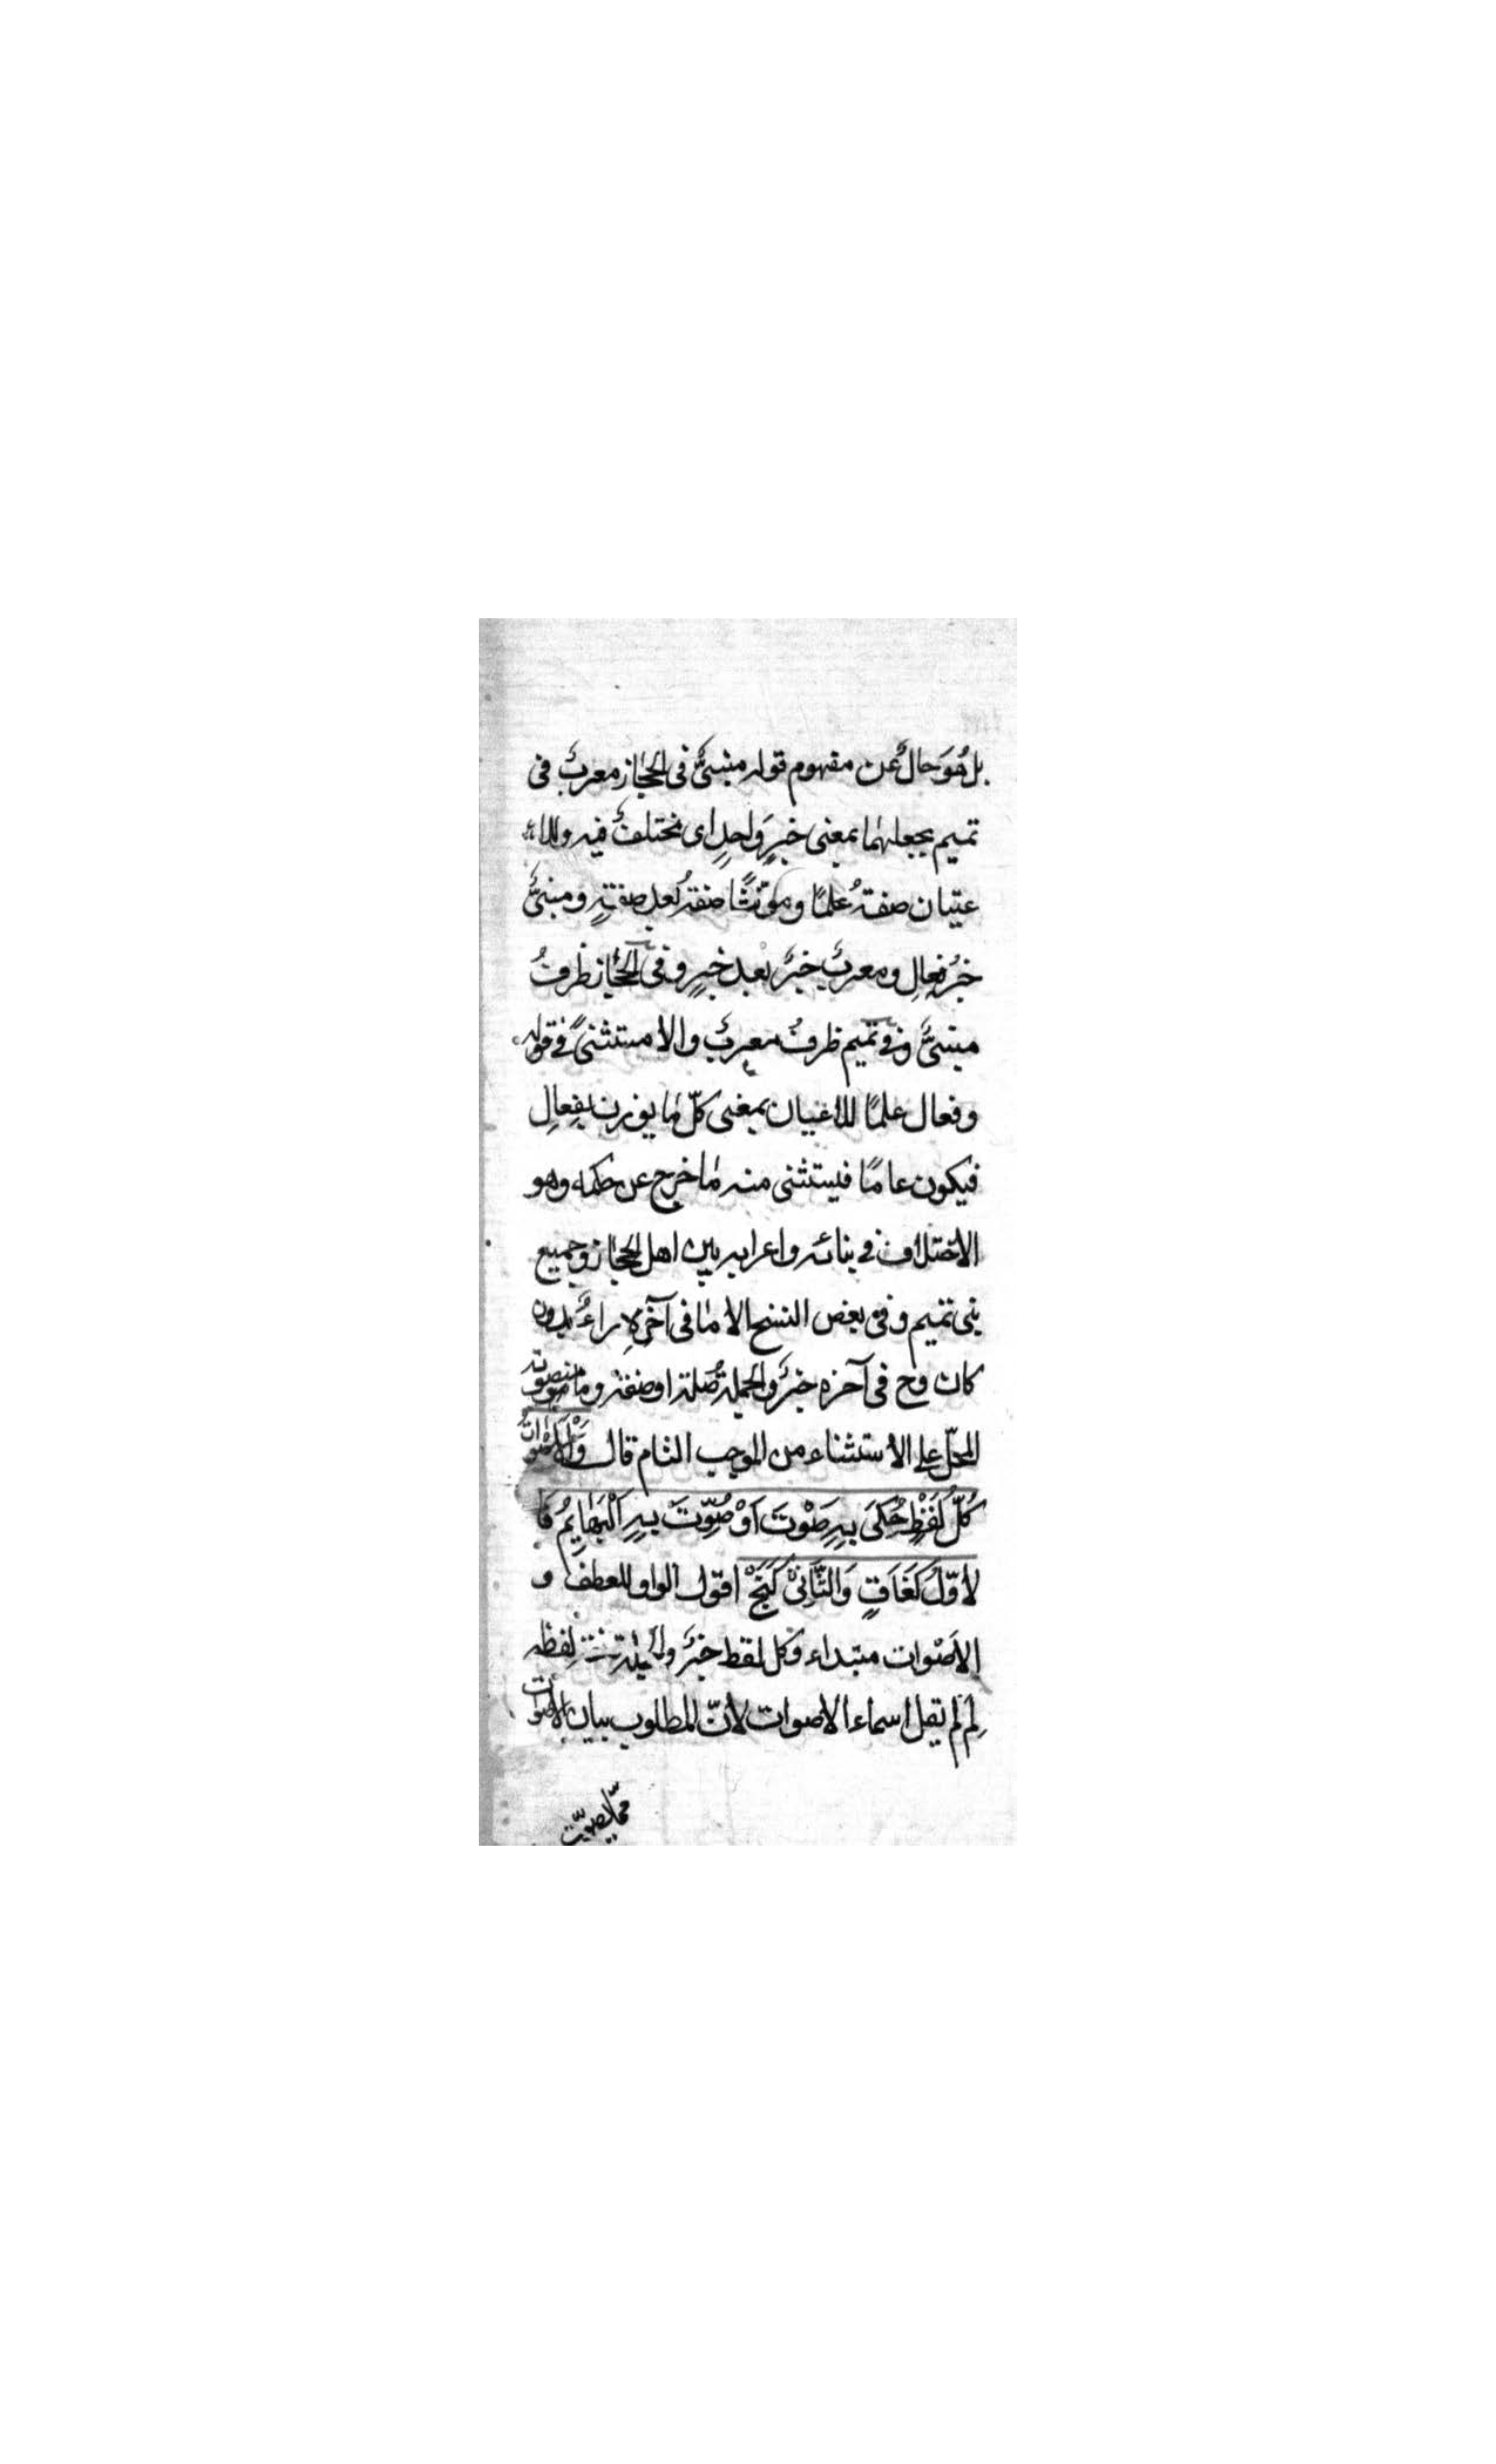 بل هُوَ حالٌ عن مفهوم قوله مبنىٌّ فى الحجاز معربٌ فى
تميم بجعلهما بمعنى خبرٍ واحدٍ اى مختلفٌ فيه وللاء
عتيان صفةُ علمًا ومؤنثًا صفةٌ بعد صفةٍ ومبنىٌّ
خبرُ فعالِ ومعربٌ خبرٌ بعد خبرٍ وفى الحجاز ظرفُ
مبنىٌّ وفى تميم ظرفُ معربٌ والا مستثنىً فى قوله
وفعال علمًا للاعيان بمعنى كلّ ما يوزن بفعالِ
فيكون عامًا فيستثنى منه ما خرج عن حكمه وهو
الاختلاف فى بنائه واعرابه بين اهل الحجاز وجميع
بنى تميم وفى بعض النسخ الا ما فى آخرِهِ راءٌ بدون
كان وح فى آخره خبرٌ والجملة صلة او صفة وما منصوبة
المحلّ على الاستثناء من الموجب التام قال وَالْاَصْوَاتُ
كُلُّ لَفْظٍ حُكِىَ بِهِ صَوْتٌ اَوْ صُوِّتَ بِهِ اَلْبَهَايِمُ فَا
لأوّلُ كَغَاقٍ وَالثَّانِىْ كَنَخْ اقول الواو للعطف و
الاَصْوات مبتداء وكل لفظ خبرٌ لفظه
لِم لم يقل اسماء الاصوات لأنّ المطلوب بيان الاصوات